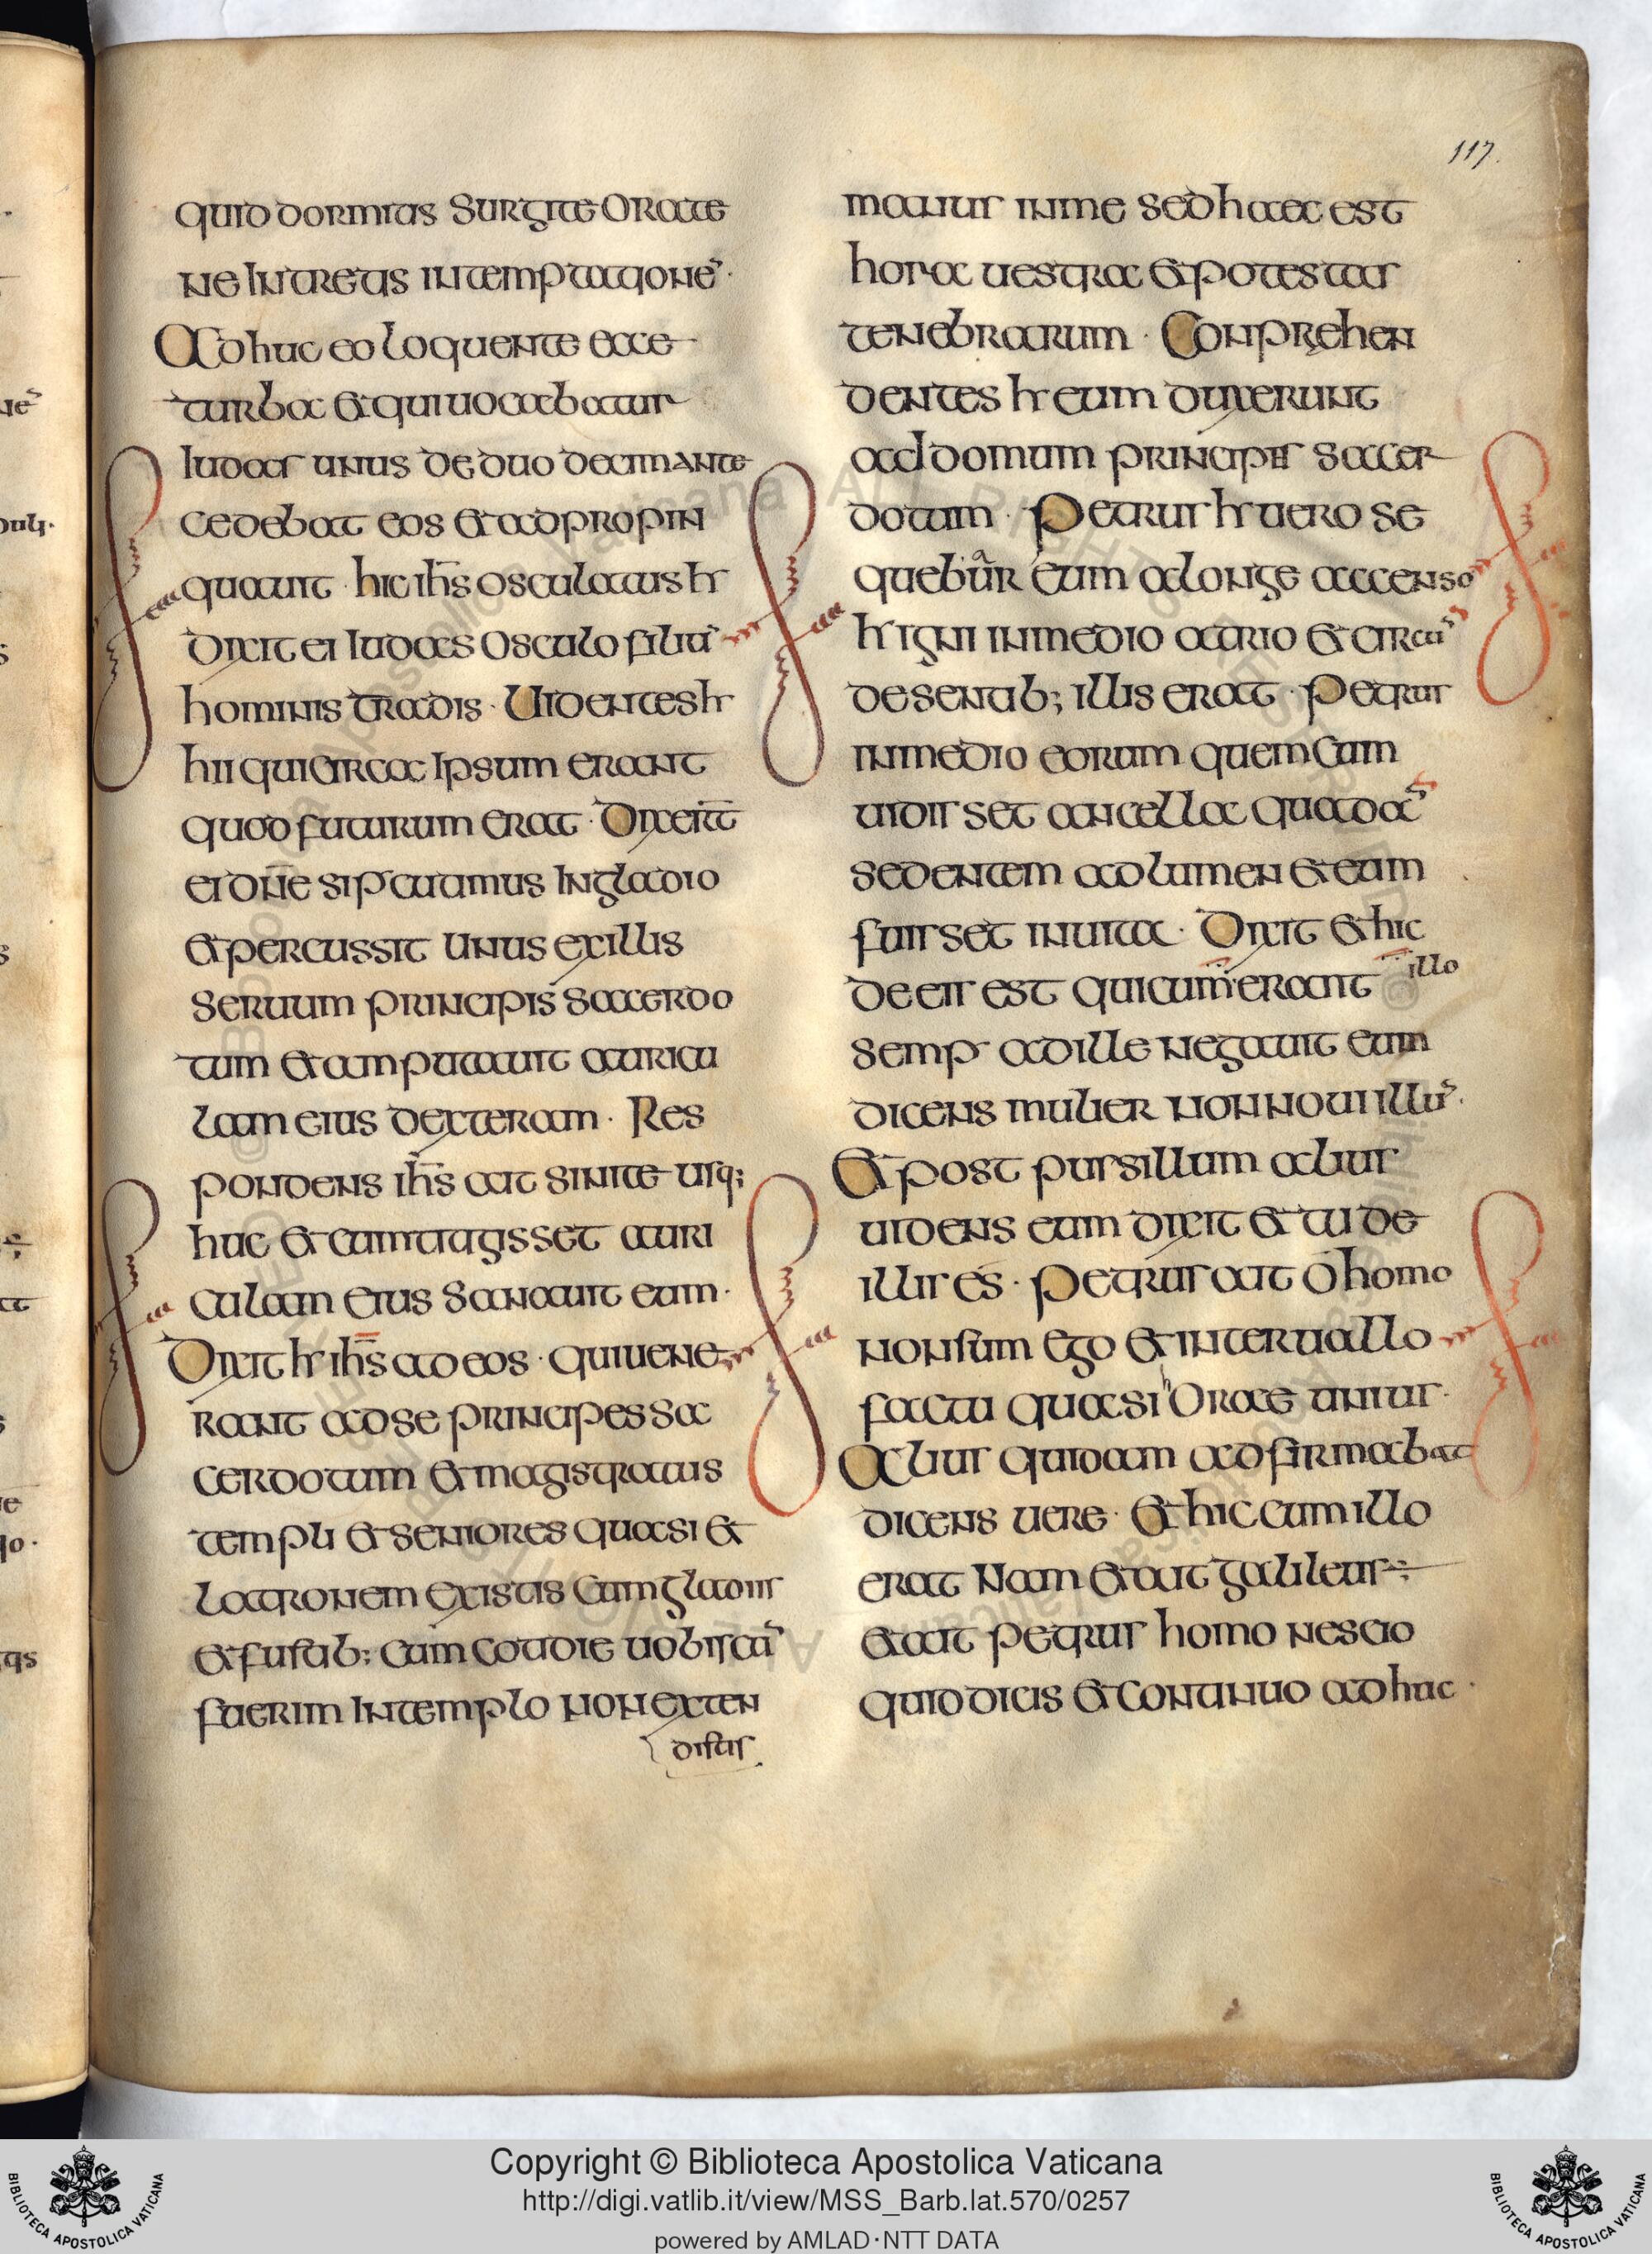 117.
quid dormitis Surgite Orate
ne Intretis intemptatione˜·
Adhuc eo loquente ecce
turba & qui uocabatur
Iudas unus de duodecim ante
cedebat eos & adpropin
quauit · hic ih̅s osculatus ħr
Dixit ei Iudas Osculo filiu˜
hominis tradis · Uidentes ħr
hii qui circa Ipsum erant
quod futurum erat · Dixer̅t
ei dn̅e si pcutimus In gladio
& percussit unus ex illis
Seruum principis sacerdo
tum & amputauit auricu
lam eius dexteram · Res
pondens ih̅s ait sinite usq;
huc & cum tetigisset auri
culam eius Sanauit eam ·
Dixit ħr ih̅s ad eos · qui uene
rant ad se principes sa
cerdotum & magistratus
templi & seniores quasi &
latronem existis Cum gladiis
& fustib; cum cotidie uobiscu˜
fuerim In templo non exten
distis
manus in me sed haec est
hora uestra & potestas
tenebrarum · Conprehen
dentes ħr eum duxerunt
ad domum principis sacer
dotum · Petrus ħr uero se
quebatur eum a longe accenso
ħr igni in medio atrio & circu˜
desentib; illis erat · Petrus
in medio eorum quem Cum
uidisset ancella quada˜
sedentem ad lumen & eum
fuisset inuita · Dixit & hic
de eis est qui cum erant illo
semp ad ille negauit eum
dicens mulier non noui illu˜·
& post pusillum alius
uidens eum dixit & tu de
illis es · Petrus ait O homo
non sum ego & interuallo
factu quasi hOrae unius ·
Alius quidam adfirmabat
dicens uere · & hic cum illo
erat Nam & ait galileus
& ait petrus homo nescio
quid dicis & continuo adhuc ·
Copyright © Biblioteca Apostolica Vaticana
http://digi.vatlib.it/view/MSS_Barb.lat.570/0257
powered by AMLAD·NTT DATA
BIBLIOTECA APOSTOLICA VATICANA
BIBLIOTECA APOSTOLICA VATICANA